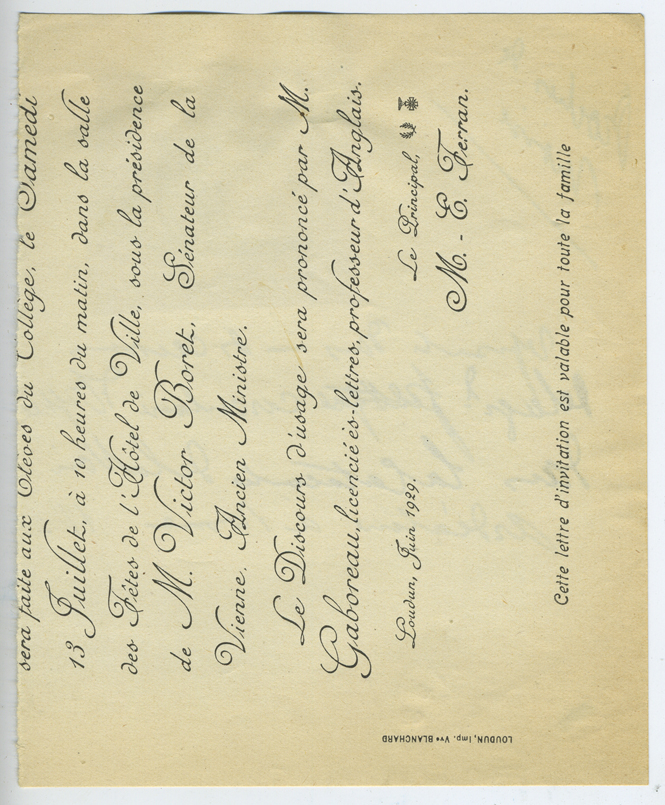 sera faite aux Élèves du Collège, le Samedi
13 Juillet, à 10 heures du matin, dans la salle
des Fêtes de l'Hôtel de Ville, sous la présidence
de M. Victor Boret, Sénateur de la
Vienne, Ancien Ministre.
Le Discours d'usage sera prononcé par M.
Gaboreau, licencié ès-lettres, professeur d'Anglais.
Loudun, Juin 1929.
Le Principal,
M.-E. Terran.
Cette lettre d'invitation est valable pour toute la famille
LOUDUN, Imp. Vve BLANCHARD